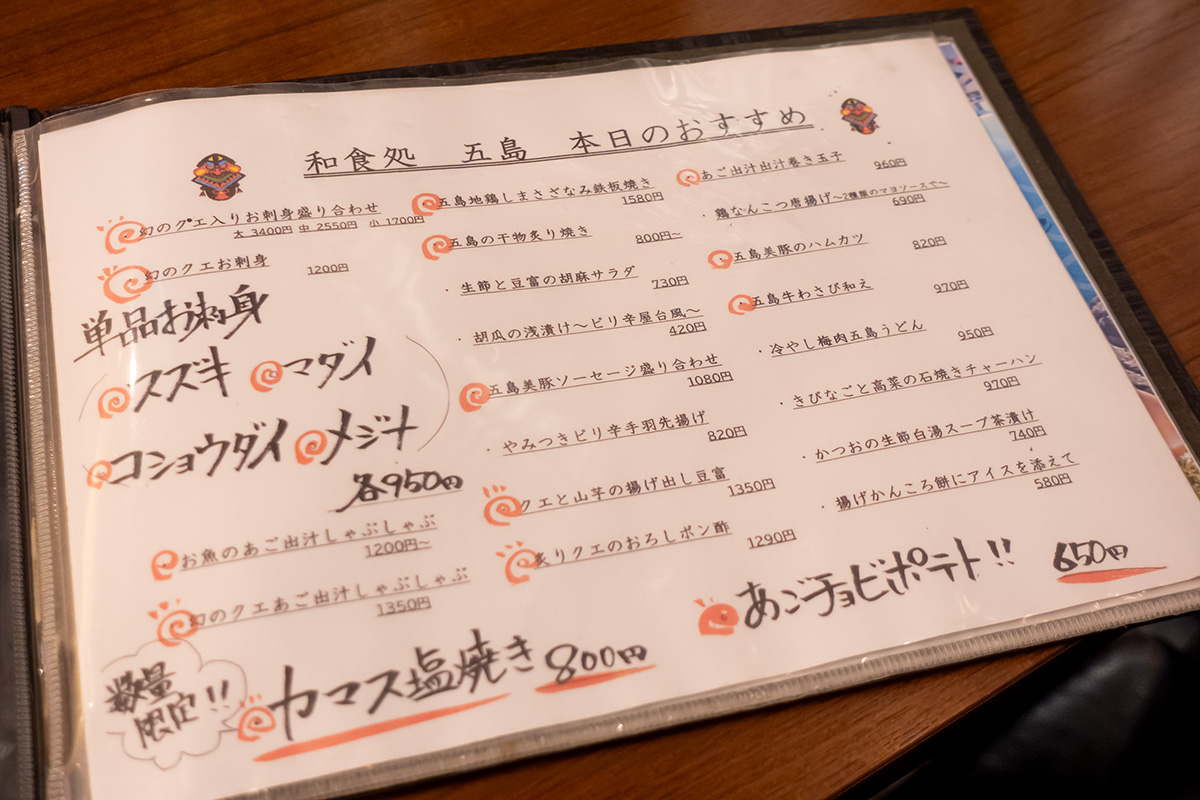 和食処 五島 本日のおすすめ
幻のクエ入りお刺身盛り合わせ
大 3400円 中 2550円 小 1700円
幻のクエお刺身 1200円
単品お刺身
スズキ マダイ
コショウダイ メジナ
各950円
お魚のあご出汁しゃぶしゃぶ
1200円～
幻のクエあご出汁しゃぶしゃぶ
1350円
数量
限定!!
カマス塩焼き 800円
五島地鶏しまさざなみ鉄板焼き
1580円
五島の干物炙り焼き 800円～
・生節と豆富の胡麻サラダ
730円
・胡瓜の浅漬け～ピリ辛屋台風～
420円
五島美豚ソーセージ盛り合わせ
1080円
・やみつきピリ辛手羽先揚げ
820円
クエと山芋の揚げ出し豆富
1350円
炙りクエのおろしポン酢 1290円
・あご出汁出汁巻き玉子 960円
・鶏なんこつ唐揚げ～2種類のマヨソースで～
690円
・五島美豚のハムカツ 820円
・五島牛わさび和え 970円
・冷やし梅肉五島うどん 950円
・きびなごと高菜の石焼きチャーハン
970円
・かつおの生節白湯スープ茶漬け
740円
・揚げかんころ餅にアイスを添えて
580円
あごチョビポテト!! 650円